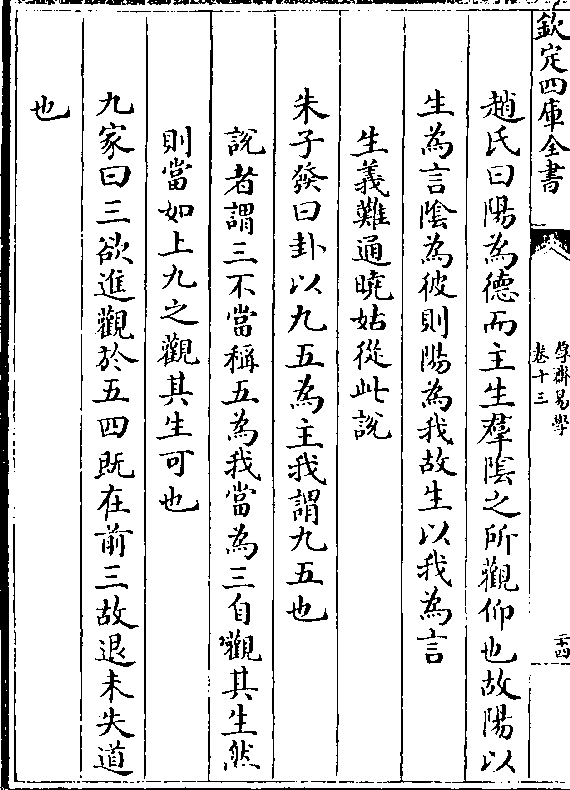 欽定四庫全書
厚齋易學
卷十三
二十四
趙氏曰陽為德而主生羣陰之所觀仰也故陽以
生為言陰為彼則陽為我故生以我為言
生義難通曉姑從此說
朱子發曰卦以九五為主我謂九五也
說者謂三不當稱五為我當為三自觀其生然
則當如上九之觀其生可也
九家曰三欲進觀於五四既在前三故退未失道
也